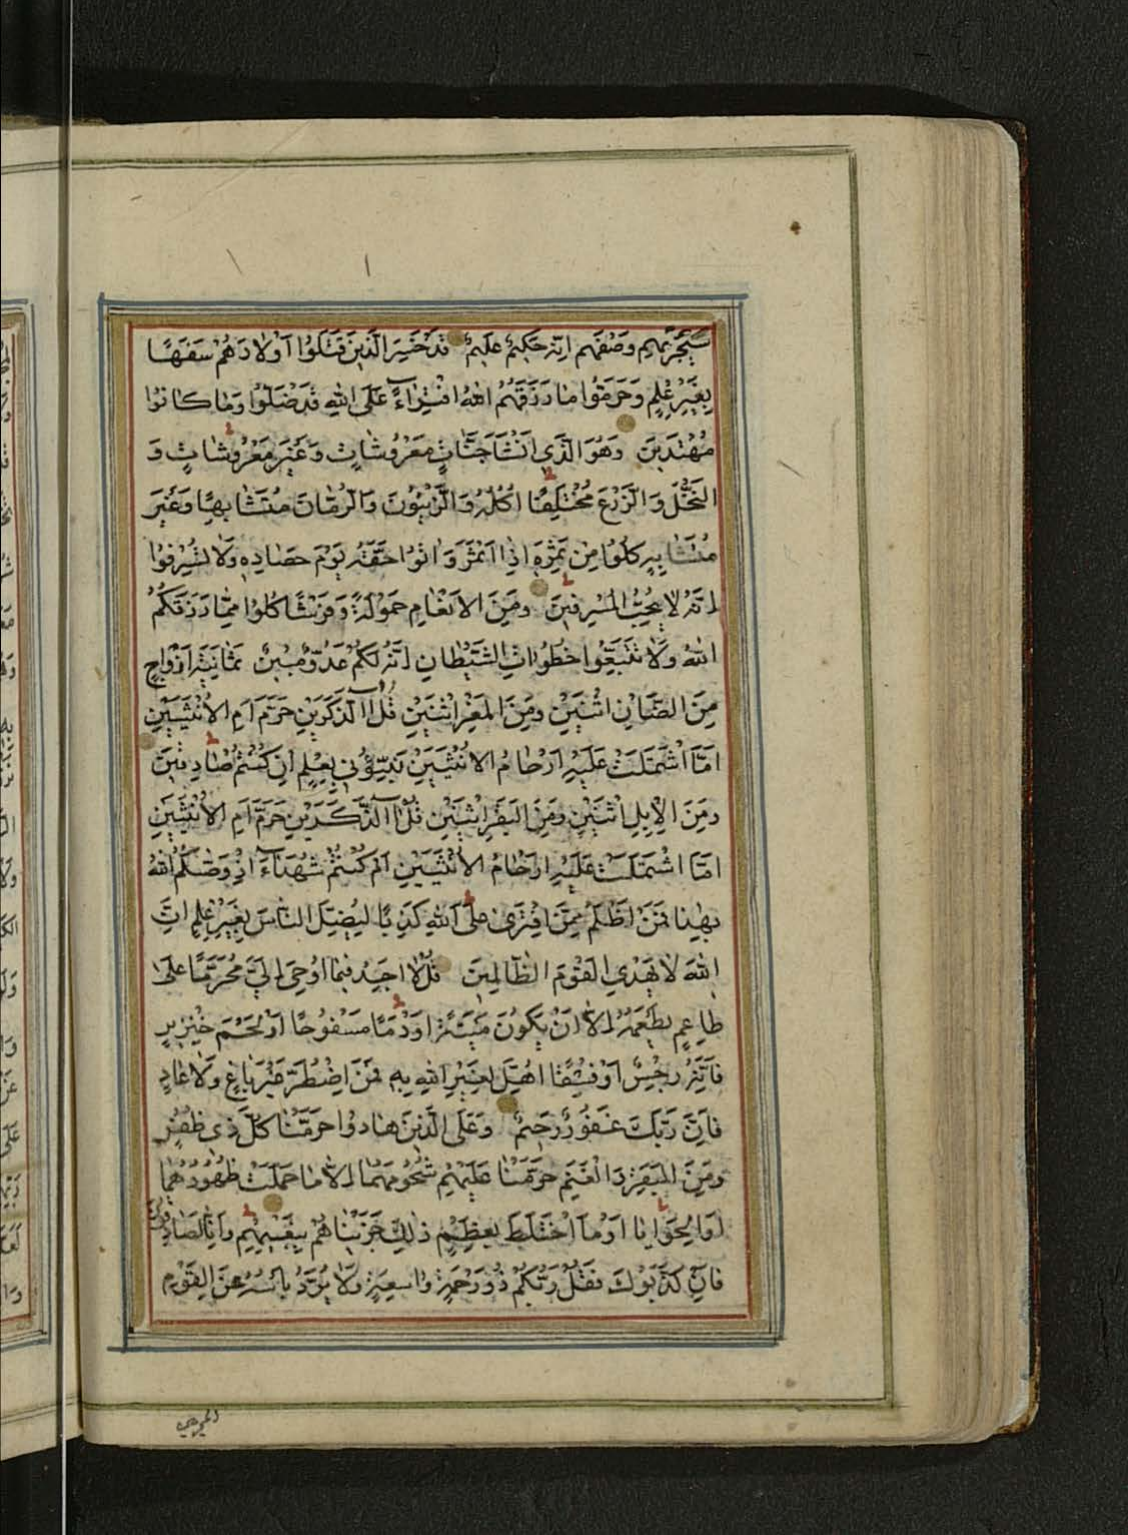 سَيَجْزِيهِمْ وَصْفَهُمْ اِنَّهُ حَكِيمٌ عَلِيمٌ قَدْ خَسِرَ الَّذِينَ قَتَلُوا اَوْلَادَهُمْ سَفَهًا
بِغَيْرِ عِلْمٍ وَحَرَّمُوا مَا رَزَقَهُمُ اللهُ افْتِرَاءً عَلَى اللهِ قَدْ ضَلُّوا وَمَا كَانُوا
مُهْتَدِينَ وَهُوَ الَّذِى اَنْشَاَ جَنَّاتٍ مَعْرُوشَاتٍ وَغَيْرَ مَعْرُوشَاتٍ وَ
النَّخْلَ وَالزَّرْعَ مُخْتَلِفًا اُكُلُهُ وَالزَّيْتُونَ وَالرُّمَّانَ مُتَشَابِهًا وَغَيْرَ
مُتَشَابِهٍ كُلُوا مِنْ ثَمَرِهِ اِذَا اَثْمَرَ وَاتُوا حَقَّهُ يَوْمَ حَصَادِهِ وَلَا تُسْرِفُوا
اِنَّهُ لَا يُحِبُّ الْمُسْرِفِينَ وَمِنَ الْاَنْعَامِ حَمُولَةً وَفَرْشًا كُلُوا مِمَّا رَزَقَكُمُ
اللهُ وَلَا تَتَّبِعُوا خُطُوَاتِ الشَّيْطَانِ اِنَّهُ لَكُمْ عَدُوٌّ مُبِينٌ ثَمَانِيَةَ اَزْوَاجٍ
مِنَ الضَّاْنِ اثْنَيْنِ وَمِنَ الْمَعْزِ اثْنَيْنِ قُلْ آالذَّكَرَيْنِ حَرَّمَ اَمِ الْاُنْثَيَيْنِ
اَمَّا اشْتَمَلَتْ عَلَيْهِ اَرْحَامُ الْاُنْثَيَيْنِ نَبِّئُونِى بِعِلْمٍ اِنْ كُنْتُمْ صَادِقِينَ
وَمِنَ الْاِبِلِ اثْنَيْنِ وَمِنَ الْبَقَرِ اثْنَيْنِ قُلْ آالذَّكَرَيْنِ حَرَّمَ اَمِ الْاُنْثَيَيْنِ
اَمَّا اشْتَمَلَتْ عَلَيْهِ اَرْحَامُ الْاُنْثَيَيْنِ اَمْ كُنْتُمْ شُهَدَاءَ اِذْ وَصَّكُمُ اللهُ
بِهٰذَا فَمَنْ اَظْلَمُ مِمَّنِ افْتَرَى عَلَى اللهِ كَذِبًا لِيُضِلَّ النَّاسَ بِغَيْرِ عِلْمٍ اِنَّ
اللهَ لَا يَهْدِي الْقَوْمَ الظَّالِمِينَ قُلْ لَا اَجِدُ فِيمَا اُوحِىَ اِلَيَّ مُحَرَّمًا عَلَى
طَاعِمٍ يَطْعَمُهُ اِلَّا اَنْ يَكُونَ مَيْتَةً اَوْ دَمًا مَسْفُوحًا اَوْ لَحْمَ خِنْزِيرٍ
فَاِنَّهُ رِجْسٌ اَوْ فِسْقًا اُهِلَّ لِغَيْرِ اللهِ بِهِ فَمَنِ اضْطُرَّ غَيْرَ بَاغٍ وَلَا عَادٍ
فَاِنَّ رَبَّكَ غَفُورٌ رَحِيمٌ وَعَلَى الَّذِينَ هَادُوا حَرَّمْنَا كُلَّ ذِى ظُفُرٍ
وَمِنَ الْبَقَرِ وَالْغَنَمِ حَرَّمْنَا عَلَيْهِمْ شُحُومَهُمَا اِلَّا مَا حَمَلَتْ ظُهُورُهُمَا
اَوِ الْحَوَايَا اَوْ مَا اخْتَلَطَ بِعَظْمٍ ذٰلِكَ جَزَيْنَاهُمْ بِبَغْيِهِمْ وَاِنَّا لَصَادِقُونَ
فَاِنْ كَذَّبُوكَ فَقُلْ رَبُّكُمْ ذُو رَحْمَةٍ وَاسِعَةٍ وَلَا يُرَدُّ بَاْسُهُ عَنِ الْقَوْمِ
المجرمين